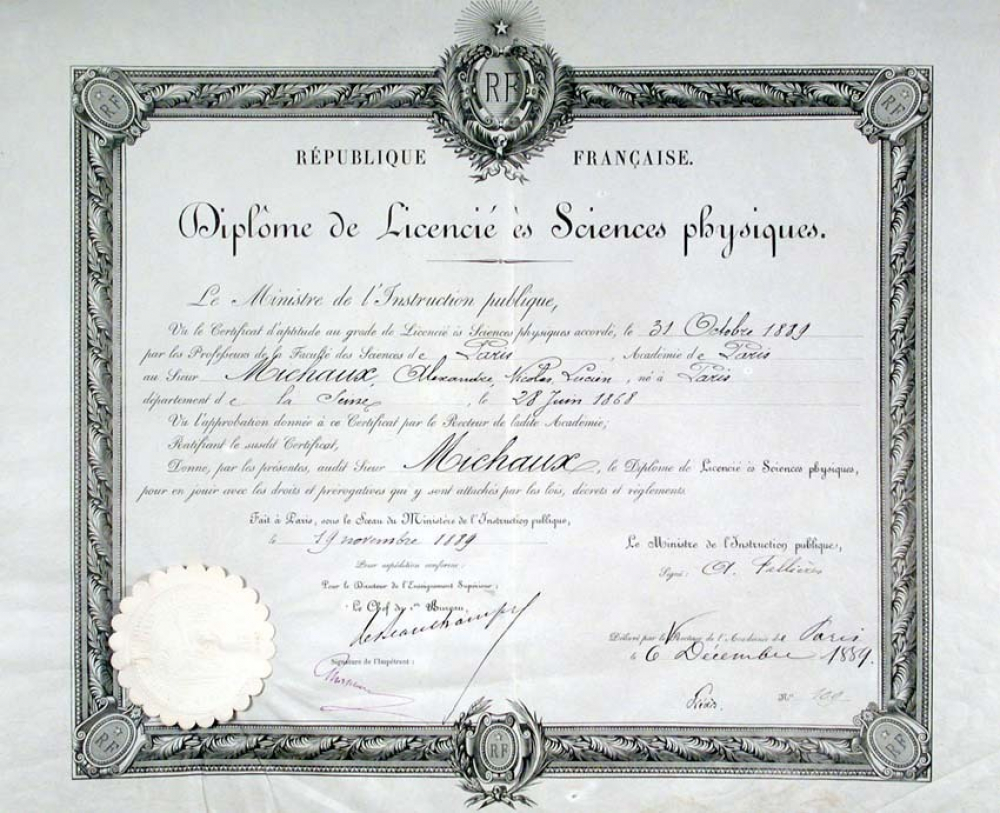 RF
RF
RF
RÉPUBLIQUE FRANÇAISE.
Diplôme de Licencié ès Sciences physiques.
Le Ministre de l'Instruction publique,
Vu le Certificat d'aptitude au grade de Licencié ès Sciences physiques accordé, le 31 Octobre 1889
par les Professeurs de la Faculté des Sciences de Paris, Académie de Paris
au Sieur Michaux, Alexandre, Nicolas, Lucien, né à Paris
département de la Seine, le 28 Juin 1868
Vu l'approbation donnée à ce Certificat par le Recteur de ladite Académie;
Ratifiant le susdit Certificat,
Donne, par les présentes, audit Sieur Michaux, le Diplome de Licencié ès Sciences physiques,
pour en jouir avec les droits et prérogatives qui y sont attachés par les lois, décrets et règlements.
Fait à Paris, sous le Sceau du Ministère de l'Instruction publique,
le 19 novembre 1889
Pour expédition conforme:
Pour le Directeur de l'Enseignement Supérieur:
Le Chef du 1er Bureau,
de Beauchamp
Signature de l'Impétrant:
Le Ministre de l'Instruction publique,
Signé: A. Fallières
Délivré par le Recteur de l'Académie de Paris
le 6 Décembre 1889.
No 109
RF
RF
RF